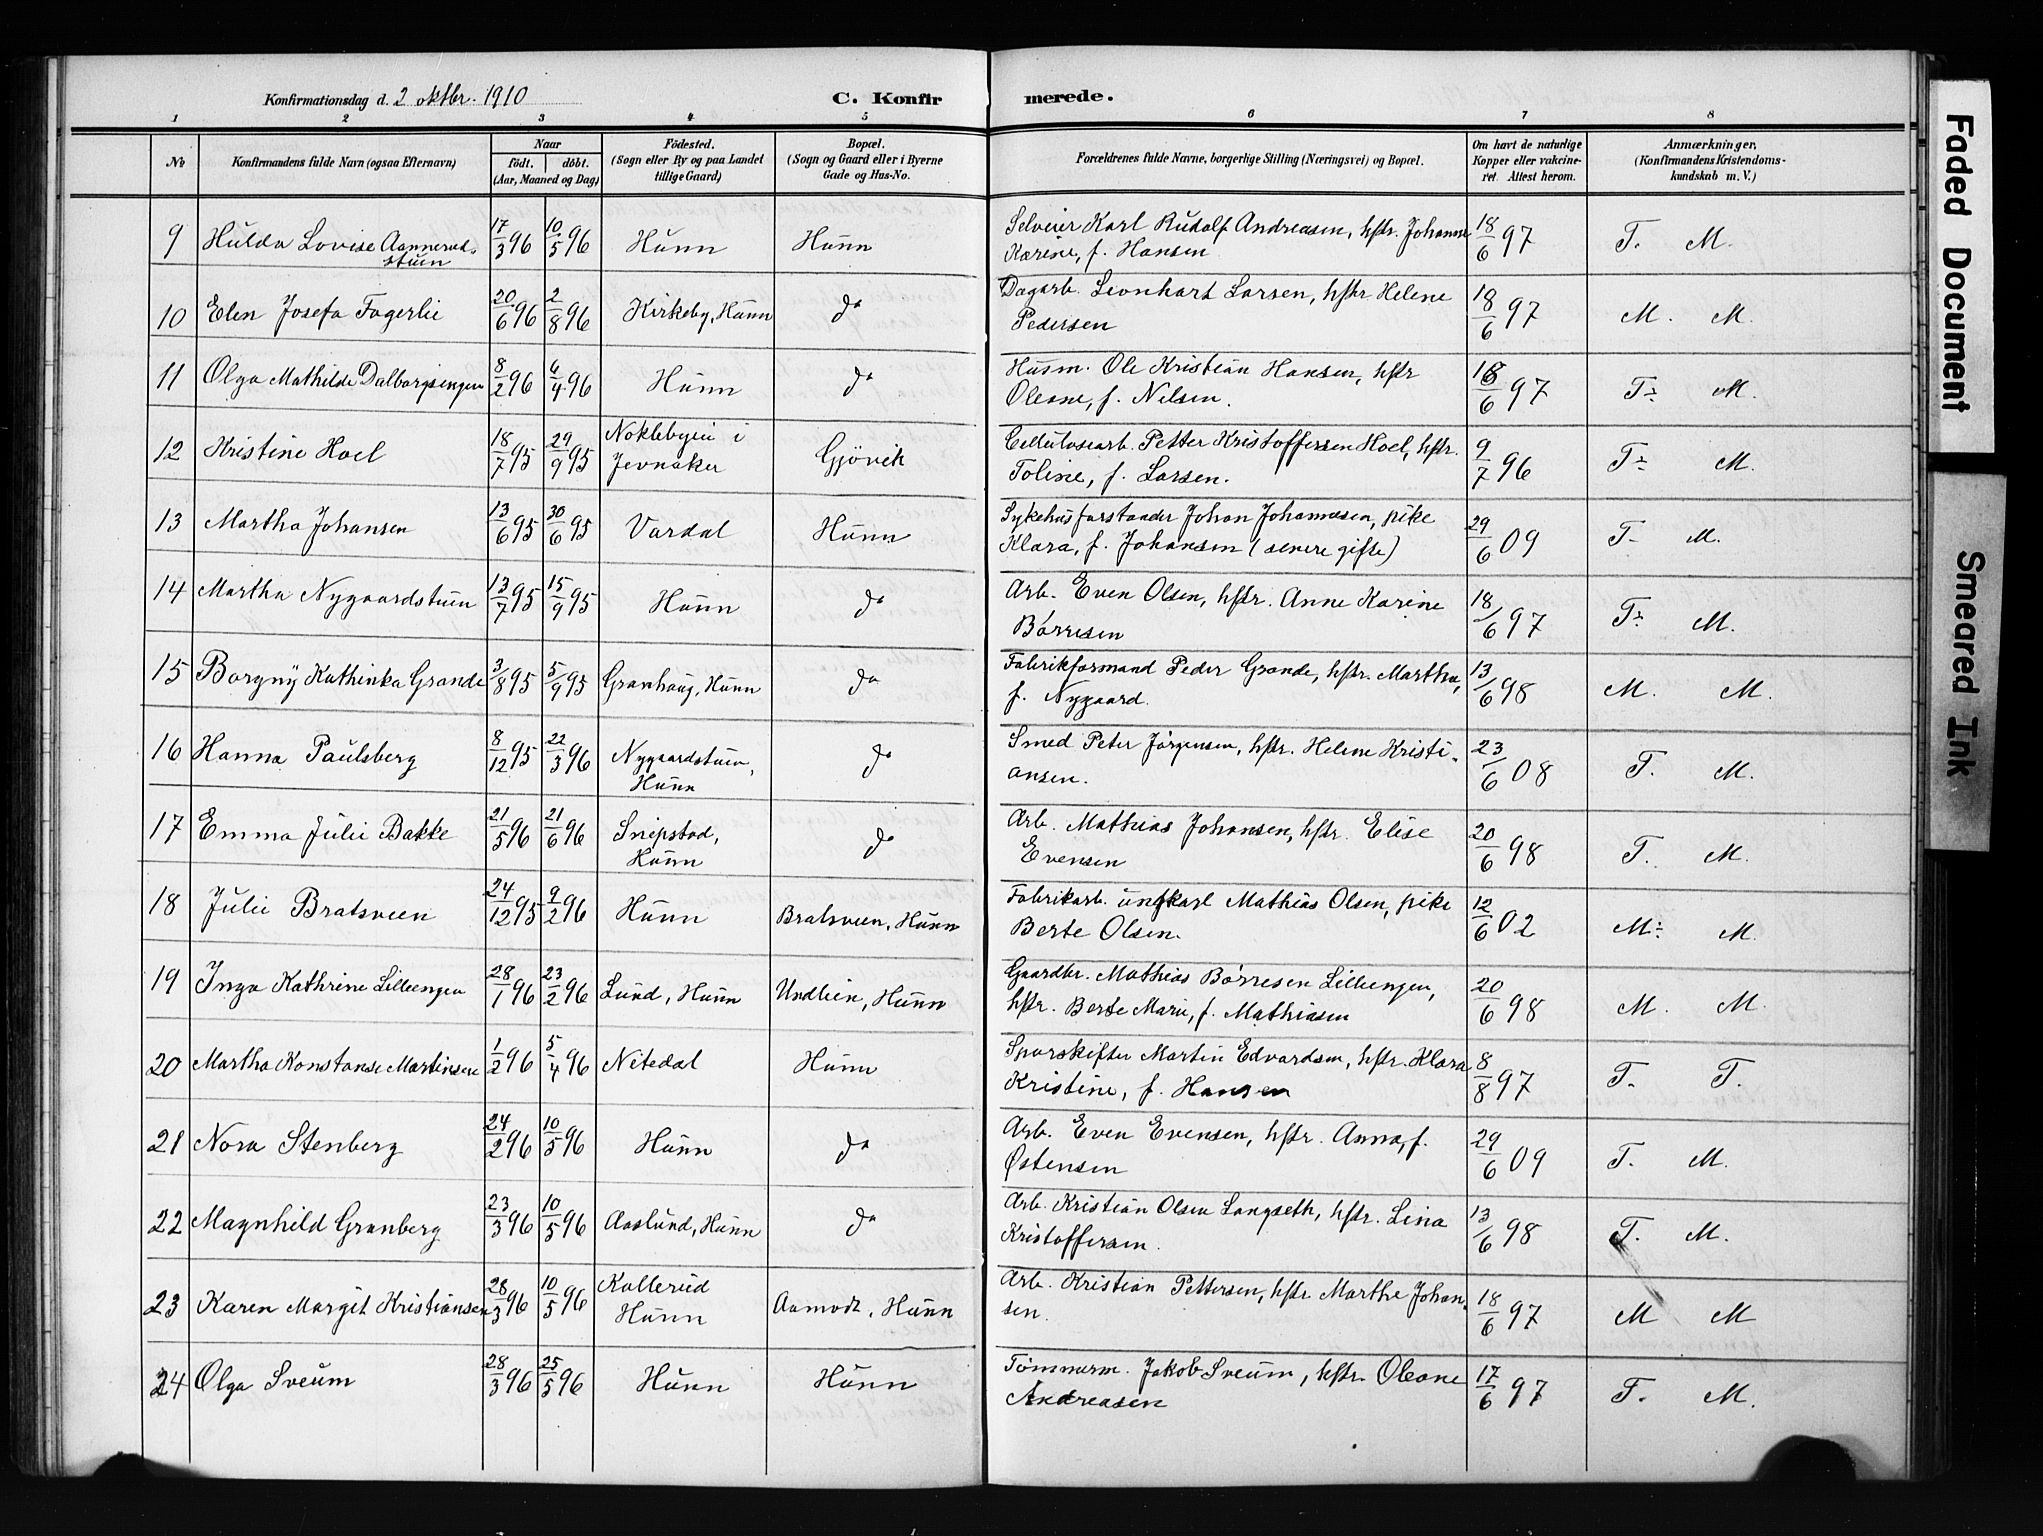 Konfirmationsdag d. 2 oktbr. 1910
C. Konfirmerede.
1 2 3 4 5 6 7 8
No
Konfirmandens fulde Navn (ogsaa Efternavn)
Naar
født. døbt.
(Aar, Maaned og Dag)
Fødested.
(Sogn eller By og paa Landet
tillige Gaard)
Bopæl.
(Sogn og Gaard eller i Byerne
Gade og Hus-No.
Forældrenes fulde Navne, borgerlige Stilling (Næringsvei) og Bopæl.
Om havt de naturlige
Kopper eller vakcine-
ret Attest herom.
Anmærkninger.
(Konfirmandens Kristendoms-
kundskab m. V.)
9 Hulda Lovise Aannerud- 17/3 96 10/5 96 Hunn Hunn Selveier Karl Rudolf Andreasen, hstr. Johanne 18/6 97 T. M.
stuen Karine, f. Hansen
10 Elen Josefa Fagerlie 20/6 96 2/8 96 Kirkeby, Hunn do Dagarb. Leonhart Larsen, hstr Helene 18/6 97 M. M.
Pedersen
11 Olga Mathilde Dalborgsengen 8/2 96 6/4 96 Hunn do Husm. Ole Kristian Hansen, hstr 18/6 97 T÷ M.
Oleane, f. Nilsen.
12 Kristine Hoel 18/7 95 29/9 95 Noklebyen i Gjövik Cellulosearb. Petter Kristoffersen Hoel, hstr. 9/7 96 T÷ M.
Jevnaker Toline, f. Larsen.
13 Martha Johansen 13/6 95 30/6 95 Vardal Hunn Sykehusforstander Johan Johannesen, pike 29/6 09 T- M.
Klara, f. Johansen (senere gifte)
14 Martha Nygaardstuen 13/7 95 15/9 95 Hunn do Arb. Even Olsen, hstr. Anne Karine 18/6 97 T÷ M.
Børresen
15 Borgny Kathinka Grande 3/8 95 5/9 95 Granhaug, Hunn do Fabrikformand Peder Grande, hstr. Martha, 13/6 98 M. M.
f. Nygaard.
16 Hanna Paulsberg 8/12 95 22/3 96 Nygaardstuen, do Smed Peter Jørgensen, hstr. Helene Kristi- 23/6 08 T. M.
Hunn ansen.
17 Emma Julie Bakke 21/5 96 21/6 96 Snipstad, do Arb. Mathias Johansen, hstr. Elise 20/6 98 T. M.
Hunn Evensen
18 Julie Bratsveen 24/12 95 9/2 96 Hunn Bratsveen, Hunn Fabrikarb. ungkarl Mathias Olsen, pike 12/6 02 M÷ M.
Berte Olsen.
19 Inga Kathrine Lilleengen 28/1 96 23/2 96 Lund, Hunn Undlien, Hunn Gaardbr. Mathias Børresen Lilleengen, 20/6 98 M. M.
hstr. Berte Marie, f. Mathiasen
20 Martha Konstanse Martinsen 1/2 96 5/4 96 Nitedal Hunn Sporskifter Martin Edvardsen, hstr. Klara 8/8 97 T. T.
Kristine, f. Hansen
21 Nora Stenberg 24/2 96 10/5 96 Hunn do Arb. Even Evensen, hstr. Anna, f. 29/6 09 T. M.
Østensen
22 Magnhild Granberg 23/3 96 10/5 96 Aaslund, Hunn do Arb. Kristian Olsen Langseth, hstr. Lina 13/6 98 T. M.
Kristoffersen.
23 Karen Margit Kristiansen 28/3 96 10/5 96 Kallerud Aamodt, Hunn Arb. Kristian Pettersen, hstr Marthe Johan- 18/6 97 M M
Hunn sen.
24 Olga Sveum 28/3 96 25/5 96 Hunn Hunn Tømmerm. Jakob Sveum, hstr. Oleane 17/6 97 T. M.
Andreasen
Faded Document
Smeared Ink